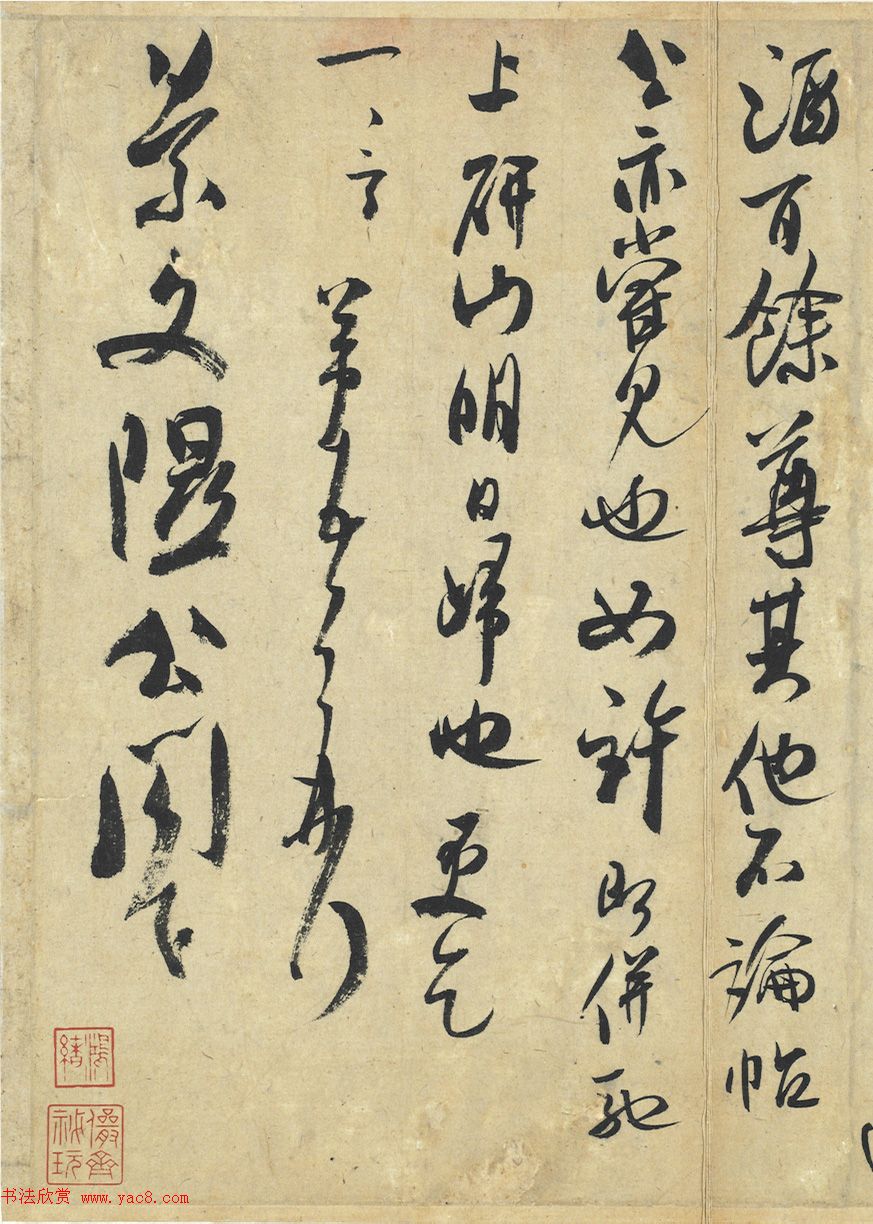 酒百餘尊其他不論帖
公亦嘗見也如許即併馳
上研山明日歸也更乞
一言 芾頓首再拜
景文隰公閣下
書法欣赏 www.yac8.com